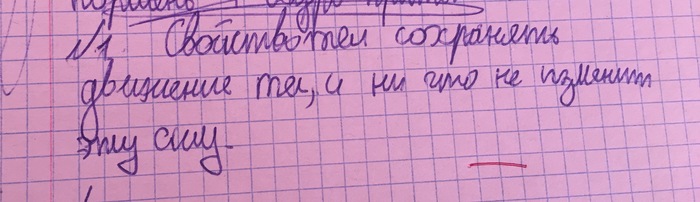 №1. Свойство тел сохранять
движение тел, и ни что не изменит
эту силу.